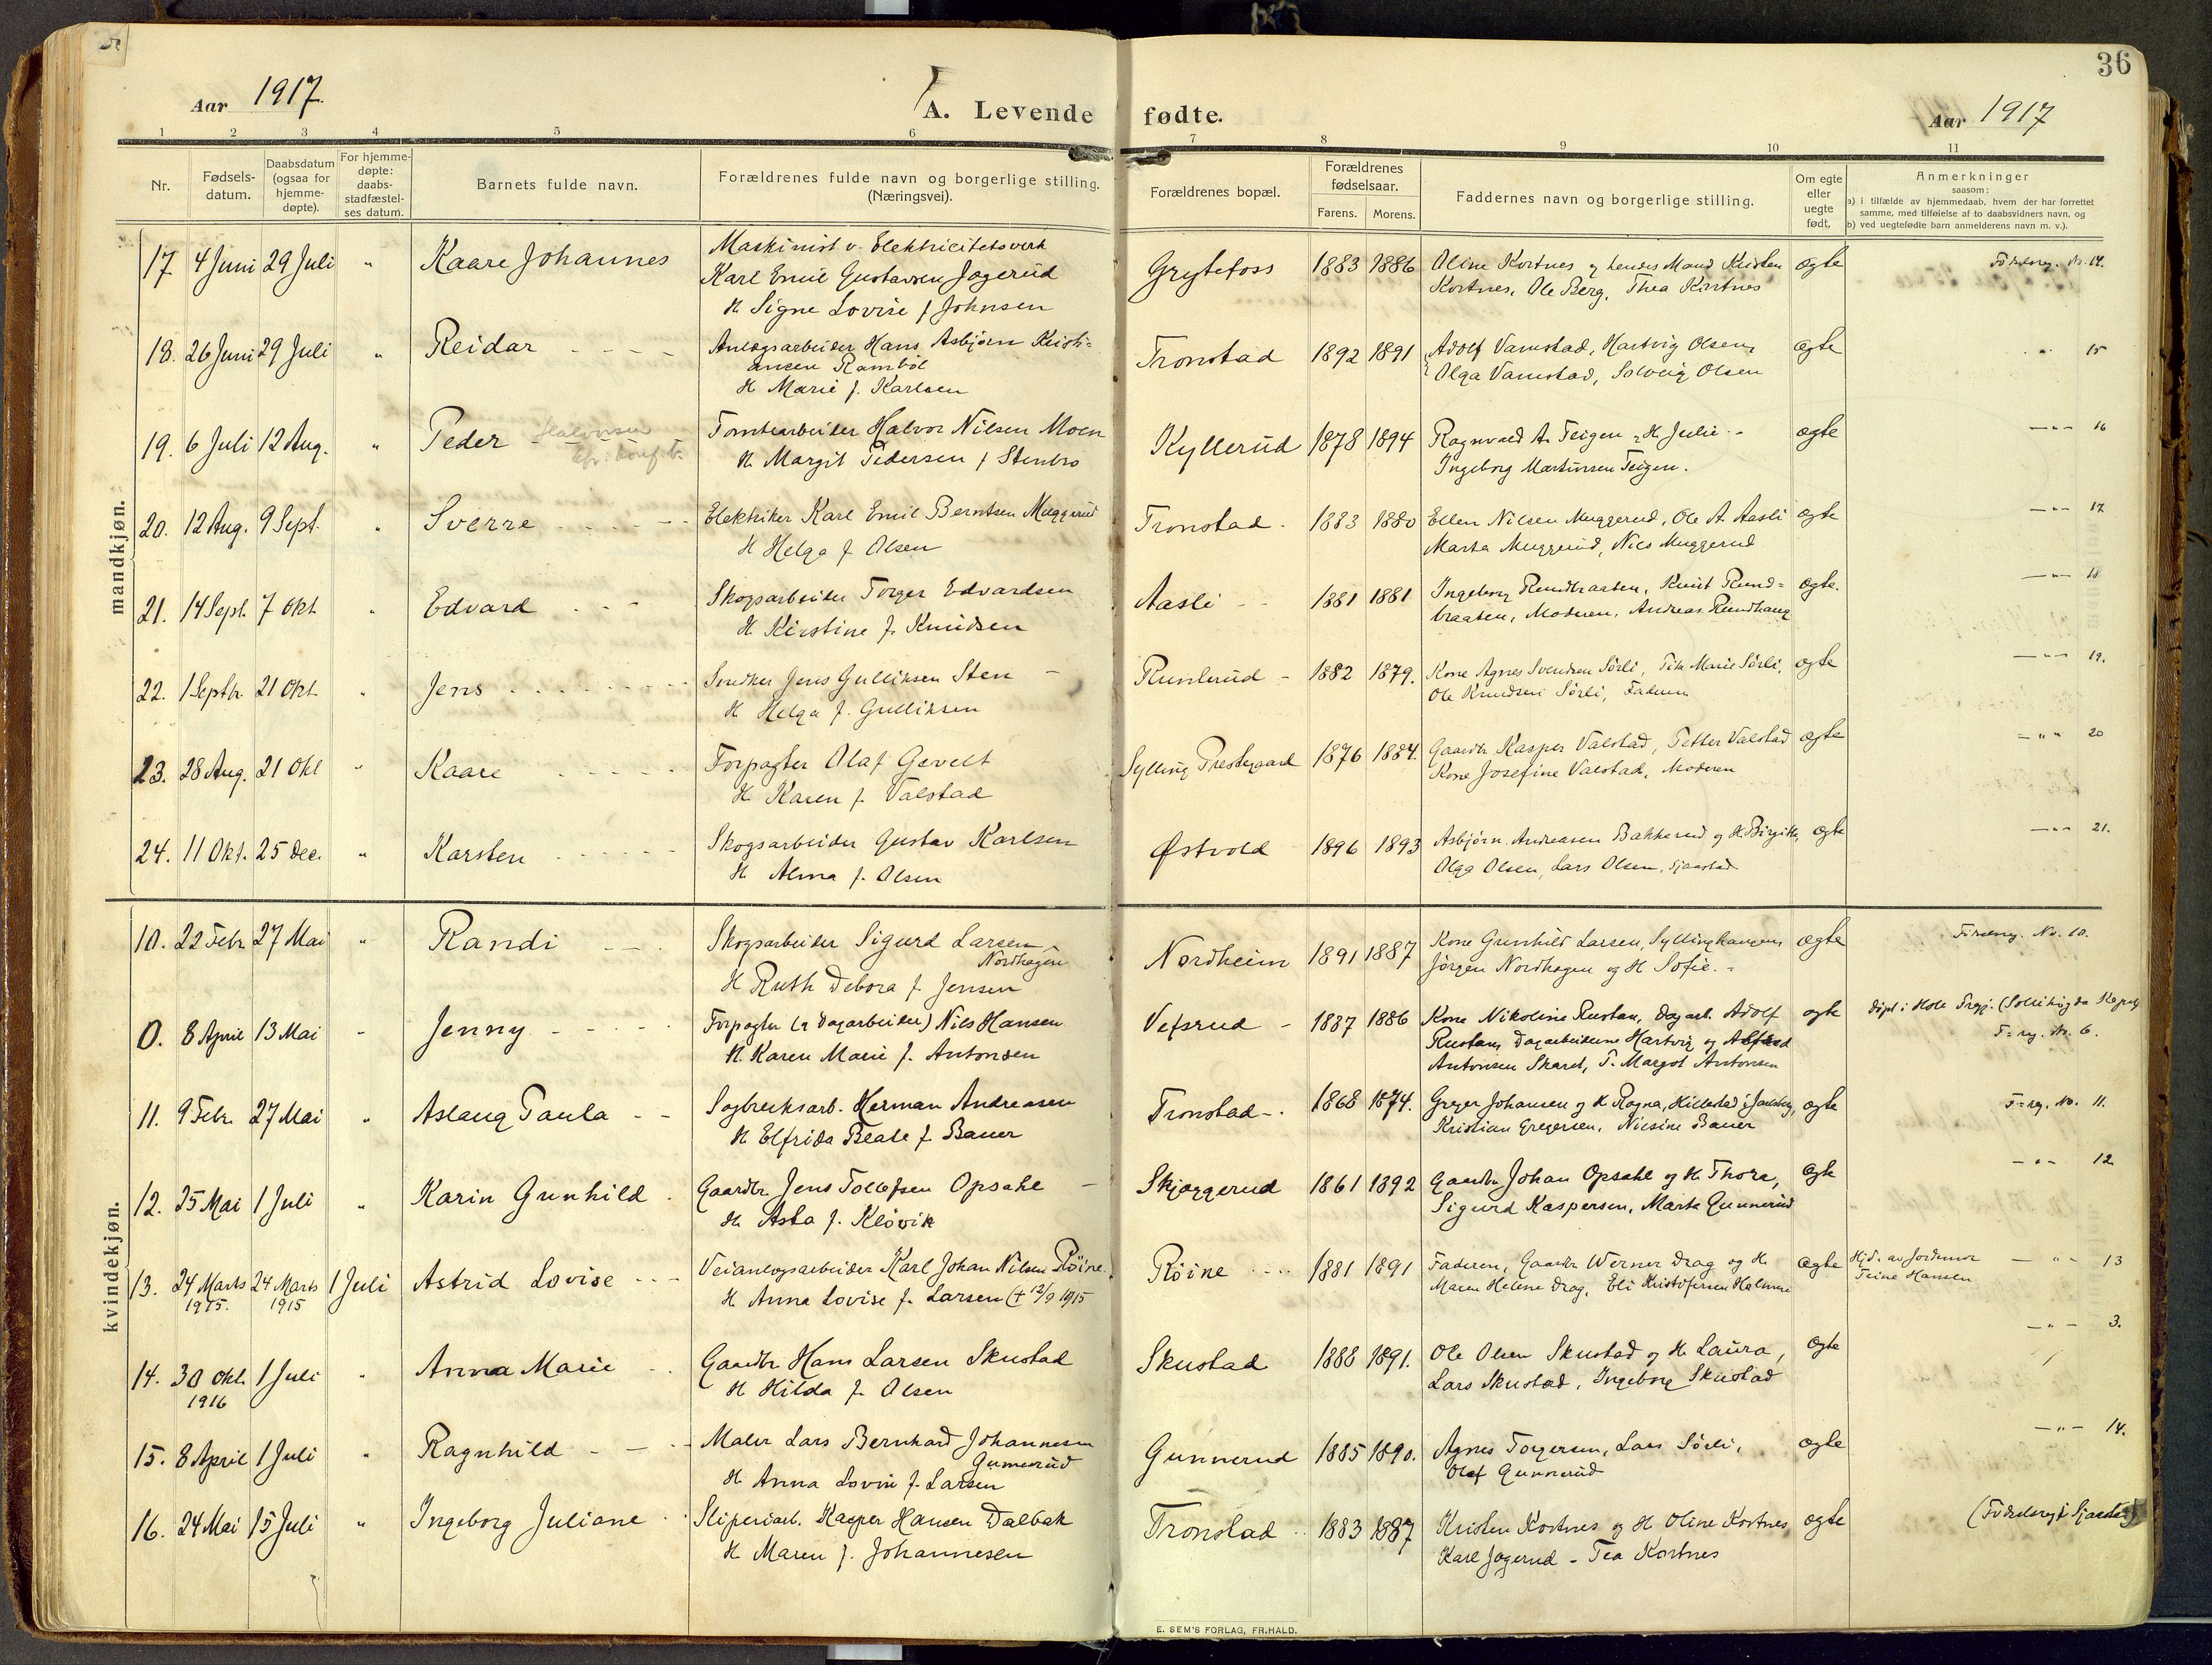 36
Aar 1917.
A. Levende fødte.
Aar 1917
1 2 3 4 5 6 7 8 9 10 11
Nr.
Fødsels-
datum.
Daabsdatum
(ogsaa for
hjemme-
døpte).
For hjemme-
døpte:
daabs-
stadfæstel-
ses datum.
Barnets fulde navn.
Forældrenes fulde navn og borgerlige stilling.
(Næringsvei).
Forældrenes bopæl.
Forældrenes
fødselsaar.
Farens. Morens.
Faddernes navn og borgerlige stilling.
Om egte
eller
uegte
født.
Anmerkninger
saasom:
a) i tilfælde av hjemmedaab, hvem der har forrettet
samme, med tilføielse af to daabsvidners navn, og
b) ved uegtefødte barn anmelderens navn m. v.).
mandkjøn.
17. 4 Juni 29 Juli " Kaare Johannes
Maskinist v. Elektricitetsverk
Karl Emil Gustavsen Jogerud
H. Signe Lovise f. Johnsen
Grytefoss 1883 1886
Oline Kortnes og hendes Mand Kristen
Kortnes, Ole Berg, Thea Kortnes
egte
Fødselsreg. Nr. 14.
18. 26 Juni 29 Juli " Reidar
Anlægsarbeider Hans Asbjørn Kristi=
ansen Rambøl
H. Marie f. Karlsen
Tronstad 1892 1891
Adolf Vamstad, Hartvig Olsen,
Olga Vamstad, Solveig Olsen
egte
" 15
19. 6 Juli 12 Aug. " Peder Halvorsen
Tomtearbeider Halvor Nilsen Moen
H. Margit Pedersen f. Stenbro
Kyllerud 1878 1894
Ragnvald A. Teigen & H. Julie -
Ingeborg Martinsen Teigen.
egte
—"— 16
20. 12 Aug. 9 Sept. " Sverre
Elektriker Karl Emil Berntsen Muggerud
H. Helga f. Olsen
Tronstad 1883 1880
Ellen Nilsen Muggerud, Ole A. Aasli
Marta Muggerud, Nils Muggerud
egte
—"— 17
21. 14 Sept. 7 Okt. " Edvard
Skogsarbeider Torger Edvardsen
H. Kirstine f. Knudsen
Aasli 1881 1881
Ingeborg Rundbraaten, Knut Rund=
braaten, Moderen, Andreas Rundhaug
egte.
—"— 18
22. 1 Septbr. 21 Okt. " Jens
Snedker Jens Gulliksen Sten
H. Helga f. Gulliksen
Runlerud 1882 1879.
Kone Agnes Svendsen Sørli, Pike Marie Sørli,
Ole Knudsen Sørli, Faderen
egte
—"— 19.
23. 28 Aug. 21 Okt " Kaare
Forpagter Olaf Gevelt
H. Karen f. Valstad
Sylling Prestegaard 1876 1884.
Gaardbr. Kasper Valstad, Petter Valstad
Kone Josefine Valstad, Moderen
egte
—"— 20
24. 11 Okt. 25 Dec. " Karsten
Skogsarbeider Gustav Karlsen
H. Alma f. Olsen
Østvold 1896 1893
Asbjørn Andreasen Bakkerud og H. Birgitte,
Olga Olsen, Lars Olsen, Sjaastad
egte
—"— 21.
kvindekjøn.
10. 22 Febr. 27 Mai " Randi
Skogsarbeider Sigurd Larsen
Nordhagen
H. Ruth Debora f. Jensen
Nordheim 1891 1887
Kone Gunhild Larsen, Syllinghaugen
Jørgen Nordhagen og H. Sofie.
egte
Fødselsreg. No. 10.
0. 8 April 13 Mai " Jenny
Forpagter (& dagarbeider) Nils Hansen
H. Karen Marie f. Antonsen
Vefsrud 1887 1886
Kone Nikoline Rustan, dagarb. Adolf
Rustan, Dagarbeiderne Hartvig og Alfred
Antonsen Skaret, P. Margot Antonsen
egte
døpt i Hole Prgj. (Sollihøgda Kapel)
F=reg. Nr. 6.
11. 9 Febr. 27 Mai " Aslaug Paula
Sagbruksarb. Herman Andreasen
H. Elfrida Beate f. Bauer
Tronstad 1868 1874.
Greger Johansen og H. Ragna, Hillestad i Jarlsberg,
Kristian Gregersen, Nilsine Bauer
egte
F=reg. No. 11.
12. 25 Mai 1 Juli " Karin Gunhild
Gaardbr. Jens Tollefsen Opsahl
H. Asta f. Kløvik
Skjæggerud 1861 1892
Gaardbr. Johan Opsahl og H. Thora,
Sigurd Kaspersen, Marta Gunnerud
egte
—"— 12
13. 24 Marts 24 Marts 1 Juli Astrid Lovise
1915. 1915
Veianlægsarbeider Karl Johan Nilsen Røine
H. Anna Lovise f. Larsen († 12/9 1915
Røine 1881 1891
Faderen, Gaardbr. Werner Drag og H.
Maren Helene Drag, Eli Kristofersen Holmen
egte
Hjd. av Jordmor
Trine Hansen —"— 13
14. 30 Okt. 1 Juli " Anna Marie
1916
Gaardbr. Hans Larsen Skustad
H. Hilda f. Olsen
Skustad 1888 1891.
Ole Olsen Skustad og H. Laura,
Lars Skustad, Ingeborg Skustad
egte
—"— 3.
15. 8 April 1 Juli " Ragnhild
Maler Lars Bernhard Johannesen
Gunnerud
H. Anna Lovise f. Larsen
Gunnerud 1885 1890.
Agnes Torgersen, Lars Sørli,
Olaf Gunnerud
egte
—"— 14.
16. 24 Mai 15 Juli " Ingeborg Juliane
Sliperiarb. Kasper Hansen Dalbak
H. Maren f. Johannesen
Tronstad 1883 1887
Kristen Kortnes og H. Oline Kortnes
Karl Jogerud - Tea Kortnes
egte
(Fødselsreg. i Sjaastad)
E. SEM'S FORLAG, FR.HALD.